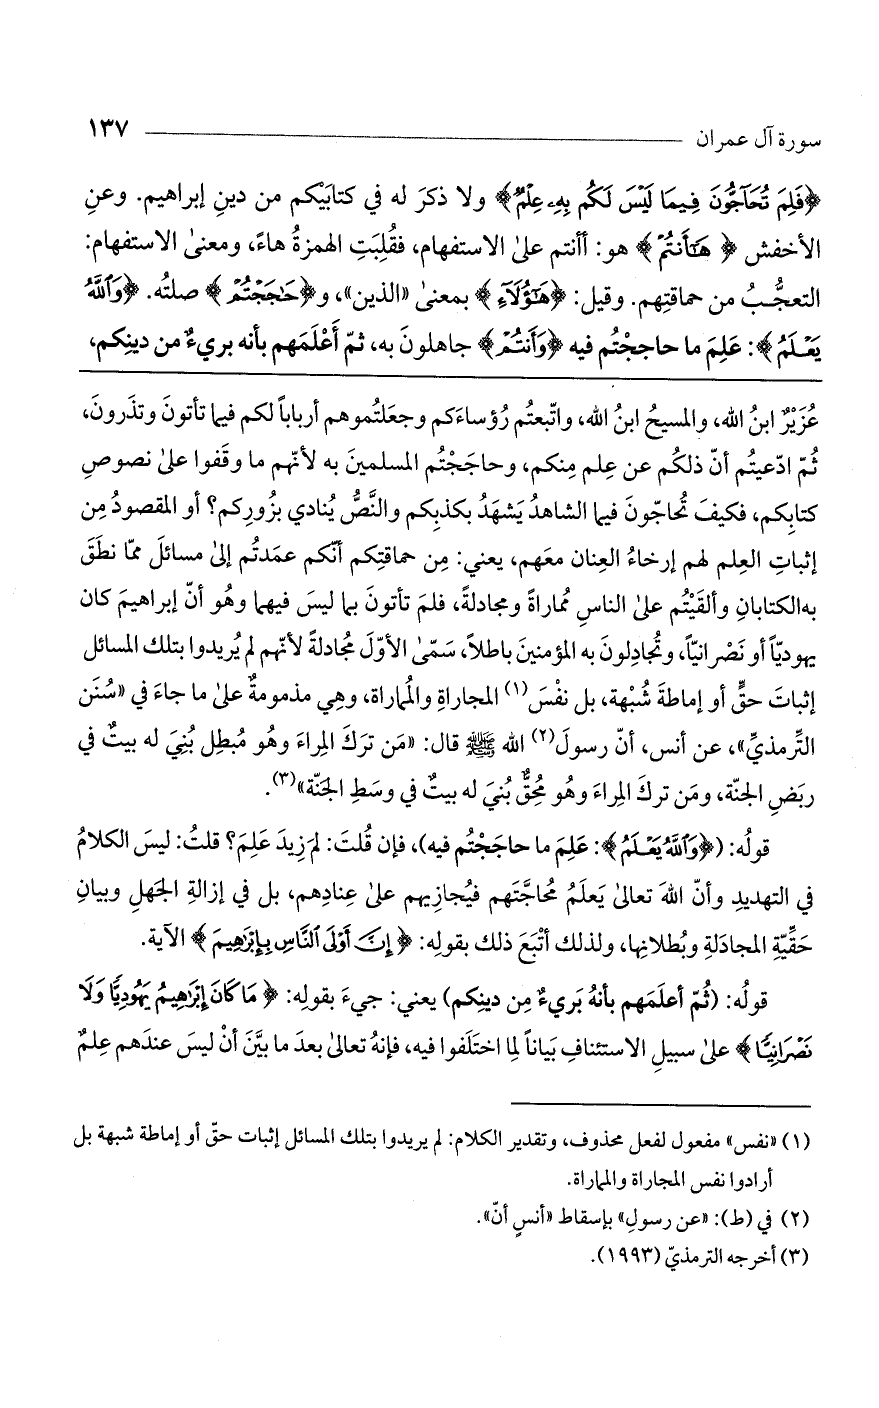 سورة آل عمران ١٣٧
﴿فَلِمَ تُحَآجُّونَ فِيمَا لَيْسَ لَكُم بِهِۦ عِلْمٌ﴾ ولا ذكرَ له في كتابَيْكم من دينِ إبراهيم. وعنِ
الأخفش ﴿هَٰٓأَنتُمْ﴾ هو: أأنتم علىٰ الاستفهام، فقُلِبَتِ الهمزةُ هاءً، ومعنىٰ الاستفهام:
التعجُّبُ من حماقتِهم. وقيل: ﴿هَٰٓؤُلَآءِ﴾ بمعنىٰ «الذين»، و﴿حَٰجَجْتُمْ﴾ صلتُه. ﴿وَٱللَّهُ
يَعْلَمُ﴾: عَلِمَ ما حاججْتُم فيه ﴿وَأَنتُمْ﴾ جاهلونَ به، ثمّ أَعْلَمَهم بأنه بريءٌ من دينِكم،
عُزَيْرٌ ابنُ الله، والمسيحُ ابنُ الله، واتّبعتُم رُؤساءَكم وجعَلتُموهم أرباباً لكم فيما تأتونَ وتذَرونَ،
ثُمّ ادّعيتُم أنّ ذلكُم عن عِلم مِنكم، وحاجَجْتُم المسلمينَ به لأنّهم ما وقَفوا علىٰ نصوصِ
كتابِكم، فكيفَ تُحاجّونَ فيما الشاهدُ يَشهَدُ بكذبِكم والنَّصُّ يُنادي بزُورِكم؟ أو المقصودُ مِن
إثباتِ العِلم لهم إرخاءُ العِنان معَهم، يعني: مِن حماقتِكم أنّكم عمَدتُم إلىٰ مسائلَ ممّا نطَقَ
به الكتابانِ وألقَيْتُم علىٰ الناسِ مُماراةً ومجادلةً، فلمَ تأتونَ بما ليسَ فيهما وهو أنّ إبراهيمَ كان
يهوديّاً أو نَصْرانيّاً، وتُجادِلونَ به المؤمنينَ باطلاً، سَمّىٰ الأوّلَ مُجادلةً لأنّهم لم يُريدوا بتلك المسائل
إثباتَ حقٍّ أو إماطةَ شُبْهة، بل نفْسَ(١) المجاراةِ والمُماراة، وهي مذمومةٌ علىٰ ما جاءَ في «سُنَن
التِّرمذيِّ»، عن أنس، أنّ رسولَ(٢) الله ﷺ قال: «مَن ترَكَ المِراءَ وهُو مُبطِل بُنِيَ له بيتٌ في
ربَضِ الجنّة، ومَن تركَ المِراءَ وهُو مُحِقٌّ بُنيَ له بيتٌ في وسَطِ الجَنّة»(٣).
قولُه: (﴿وَٱللَّهُ يَعْلَمُ﴾: عَلِمَ ما حاجَجْتُم فيه)، فإن قُلتَ: لمَ زِيدَ عَلِمَ؟ قلتُ: ليسَ الكلامُ
في التهديدِ وأنّ اللهَ تعالىٰ يَعلَمُ مُحاجَّتَهم فيُجازِيهم علىٰ عِنادِهم، بل في إزالةِ الجَهلِ وبيانِ
حَقِّيّةِ المجادَلةِ وبُطلانِها، ولذلك أتْبَعَ ذلك بقولِه: ﴿إِنَّ أَوْلَى ٱلنَّاسِ بِإِبْرَٰهِيمَ﴾ الآية.
قولُه: (ثُمّ أعلَمَهم بأنهُ بَريءٌ مِن دينِكم) يعني: جيءَ بقولِه: ﴿مَا كَانَ إِبْرَٰهِيمُ يَهُودِيًّا وَلَا
نَصْرَانِيًّا﴾ علىٰ سبيلِ الاستئنافِ بَياناً لِما اختَلَفوا فيه، فإنهُ تعالىٰ بعدَ ما بيَّنَ أنْ ليسَ عندَهم عِلمٌ
(١) «نفس» مفعول لفعل محذوف، وتقدير الكلام: لم يريدوا بتلك المسائل إثبات حقّ أو إماطة شبهة بل
أرادوا نفس المجاراة والمماراة.
(٢) في (ط): «عن رسولِ» بإسقاط «أنسٍ أنّ».
(٣) أخرجه الترمذيّ (١٩٩٣).